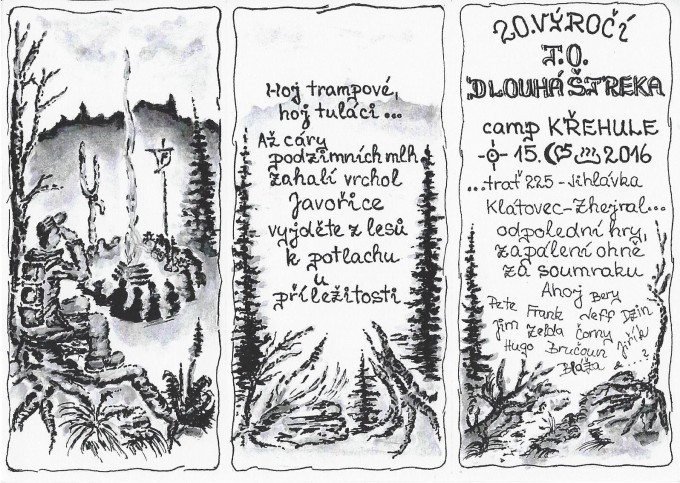 Hoj trampové,
hoj tuláci...
Až cáry
podzimních mlh
zahalí vrchol
Javořice
vyjděte z lesů
k potlachu
u
příležitosti
20.VÝROČÍ
T.O.
DLOUHÁ ŠTREKA
camp KŘEHULE
15. 2016
...trať 225-Jihlávka
Klatovec-Zhejral...
odpolední hry,
zapálení ohně
za soumraku
Ahoj Bery
Pete Frank Neff Džin
Jim Zelda Čorny Jiřík
Hugo Bručoun
Bláža &...?